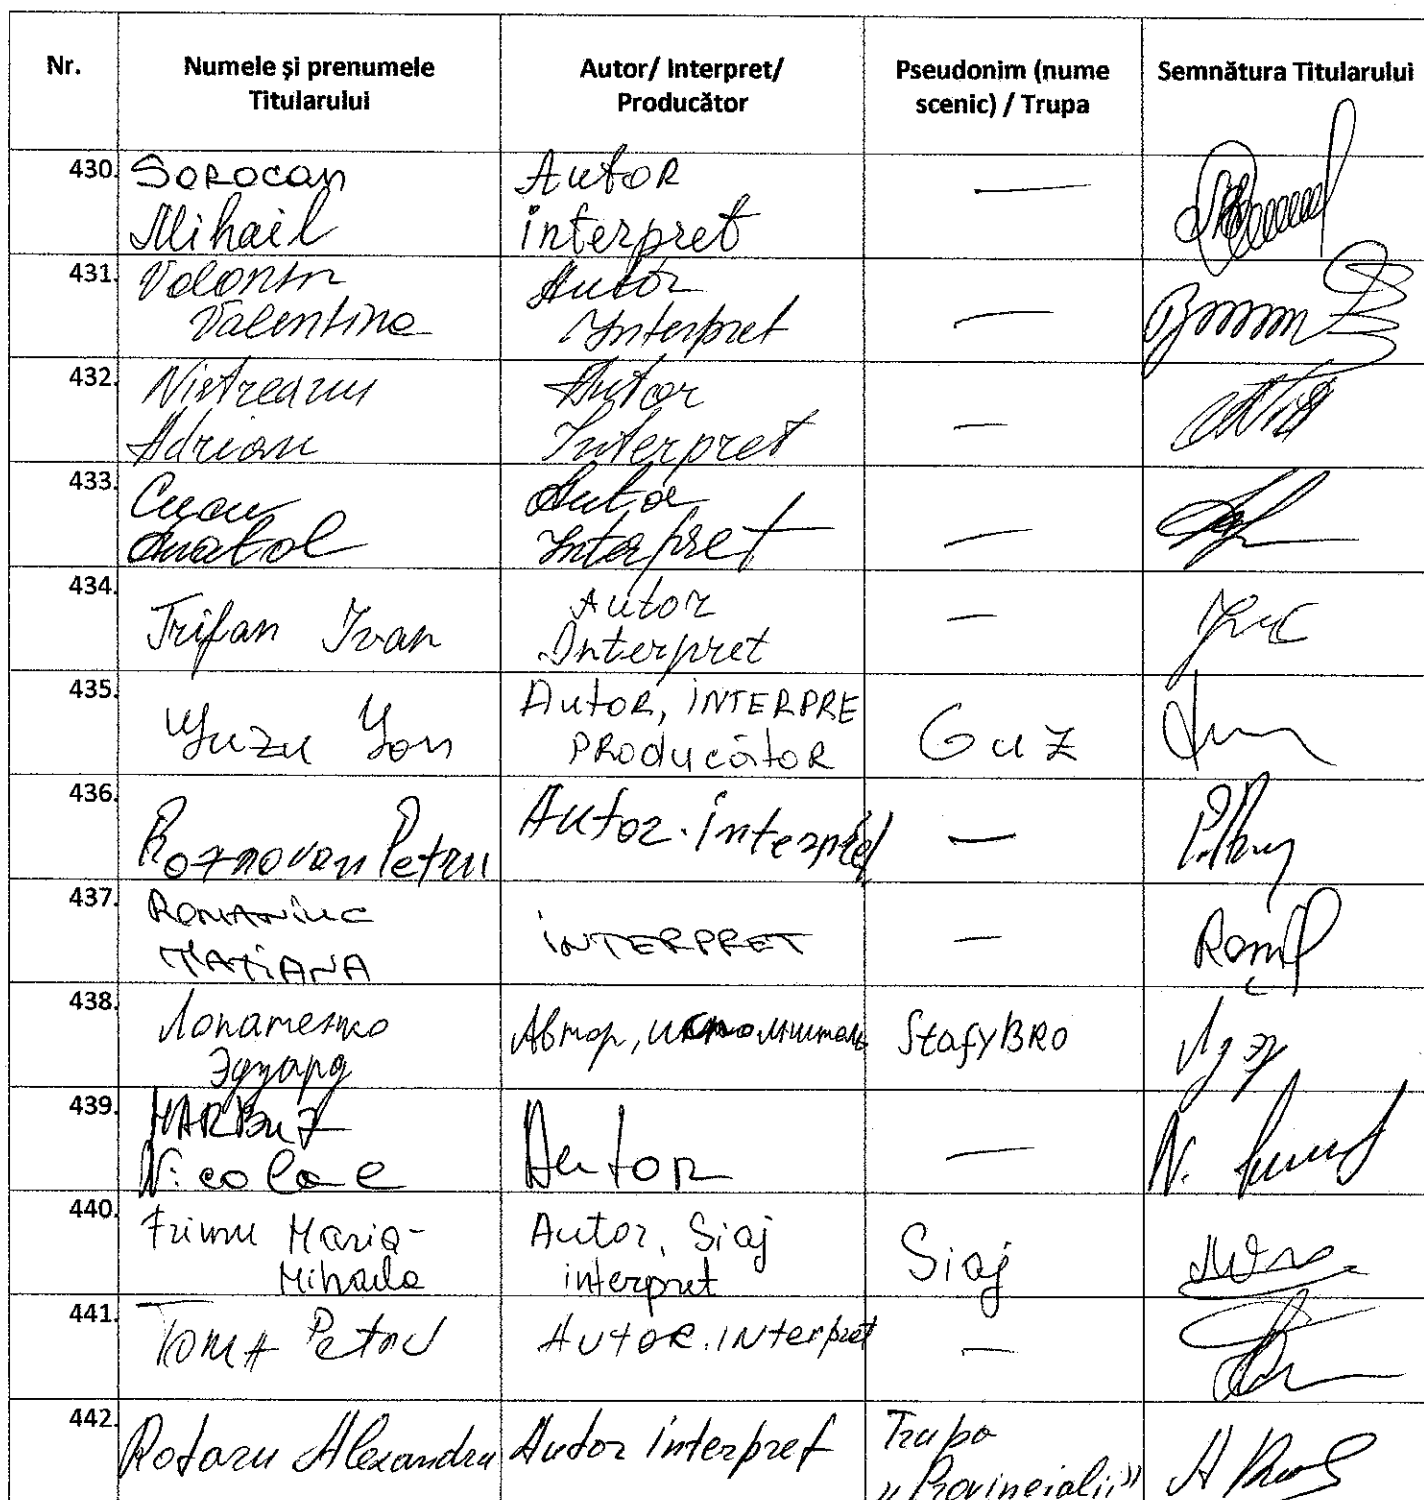 Nr.
Numele și prenumele
Titularului
Autor/ Interpret/
Producător
Pseudonim (nume
scenic) / Trupa
Semnătura Titularului
430.
Sorocan
Mihail
Autor
interpret
—
431.
Valentina
Autor
Interpret
—
432.
Nistreanu
Adrian
Autor
Interpret
—
433.
Anatol
Autor
Interpret
—
434.
Trifan Ivan
Autor
Interpret
—
435.
Guzu Ion
Autor, INTERPRE
PRODucător
Guz
436.
Roznovan Petru
Autor. interpret
—
437.
ROMANiuc
TATiANA
iNTERPRET
—
438.
Лопатенко
Эдуард
Автор, исполнитель
StafyBRO
439.
HARBUZ
Nicolae
Autor
—
N.
440.
Frimu Maria-
Mihaela
Autor, Siaj
interpret
Siaj
441.
Toma Petru
AUTOR.interpret
—
442.
Rotaru Alexandru
Autor interpret
Trupa
„Provincialii”